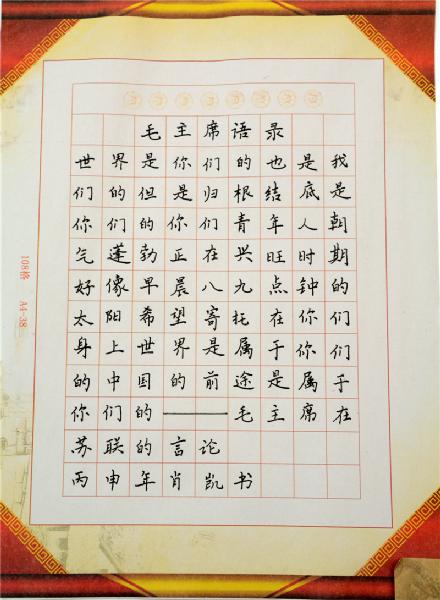 毛主席语录
世界是你们的也是我
们的但是归根结底是
你们的你们青年人朝
气蓬勃正在兴旺时期
好像早晨八九点钟的
太阳希望寄托在你们
身上世界是属于你们
的中国的前途是属于
你们的——毛主席在
苏联的言论
丙申年肖凯书
108格 A4-38